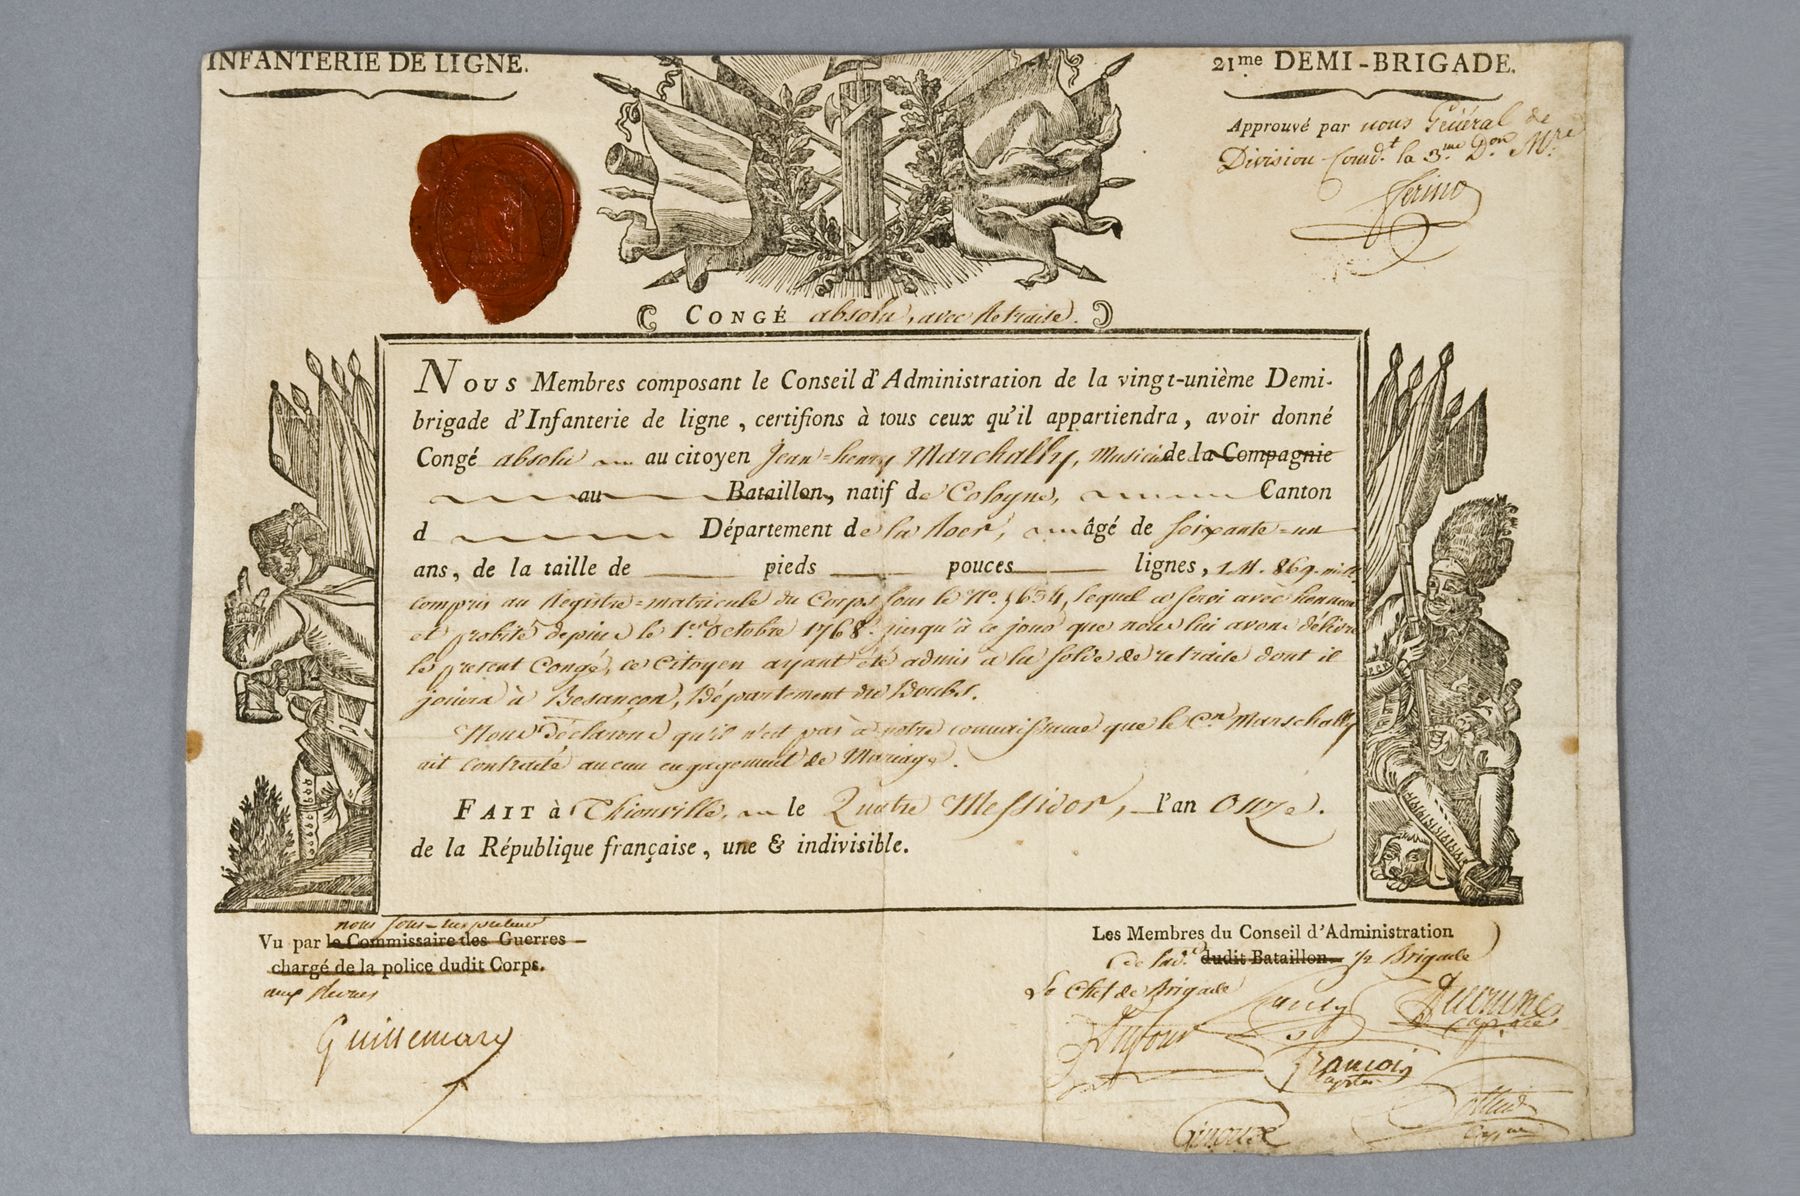 INFANTERIE DE LIGNE.
21me DEMI-BRIGADE.
Approuvé par nous Général de
Division Comd.t la 3.me D.on M.re
CONGÉ absolu, avec Retraite.
NOUS Membres composant le Conseil d'Administration de la vingt-unième Demi-
brigade d'Infanterie de ligne, certifions à tous ceux qu'il appartiendra, avoir donné
Congé absolu au citoyen Jean-henry Marchally, Musicien de la Compagnie
au Bataillon, natif de Cologne, Canton
d Département de la Roer, âgé de soixante-un
ans, de la taille de pieds pouces lignes, 1 M. 869 mill.
compris au Registre-matricule du Corps sous le N.o 1634, lequel a servi avec honneur
et probité depuis le 1.er Octobre 1768. jusqu'à ce jour que nous lui avons délivré
le present Congé, ce Citoyen ayant été admis à la solde de retraite dont il
jouira à Besançon, Département du Doubs.
Nous déclarons qu'il n'est pas à notre connaissance que le C.en Marschally
ait contracté aucun engagement de Mariage.
FAIT à Thionville, le Quatre Messidor, l'an Onze.
de la République française, une & indivisible.
nous sous-inspecteur
Vu par le Commissaire des Guerres
chargé de la police dudit Corps.
aux Revues
Guillemard
Les Membres du Conseil d'Administration
de lad.e dudit Bataillon. 1/2 Brigade
Le Chef de Brigade
Dufour
François
Giroux